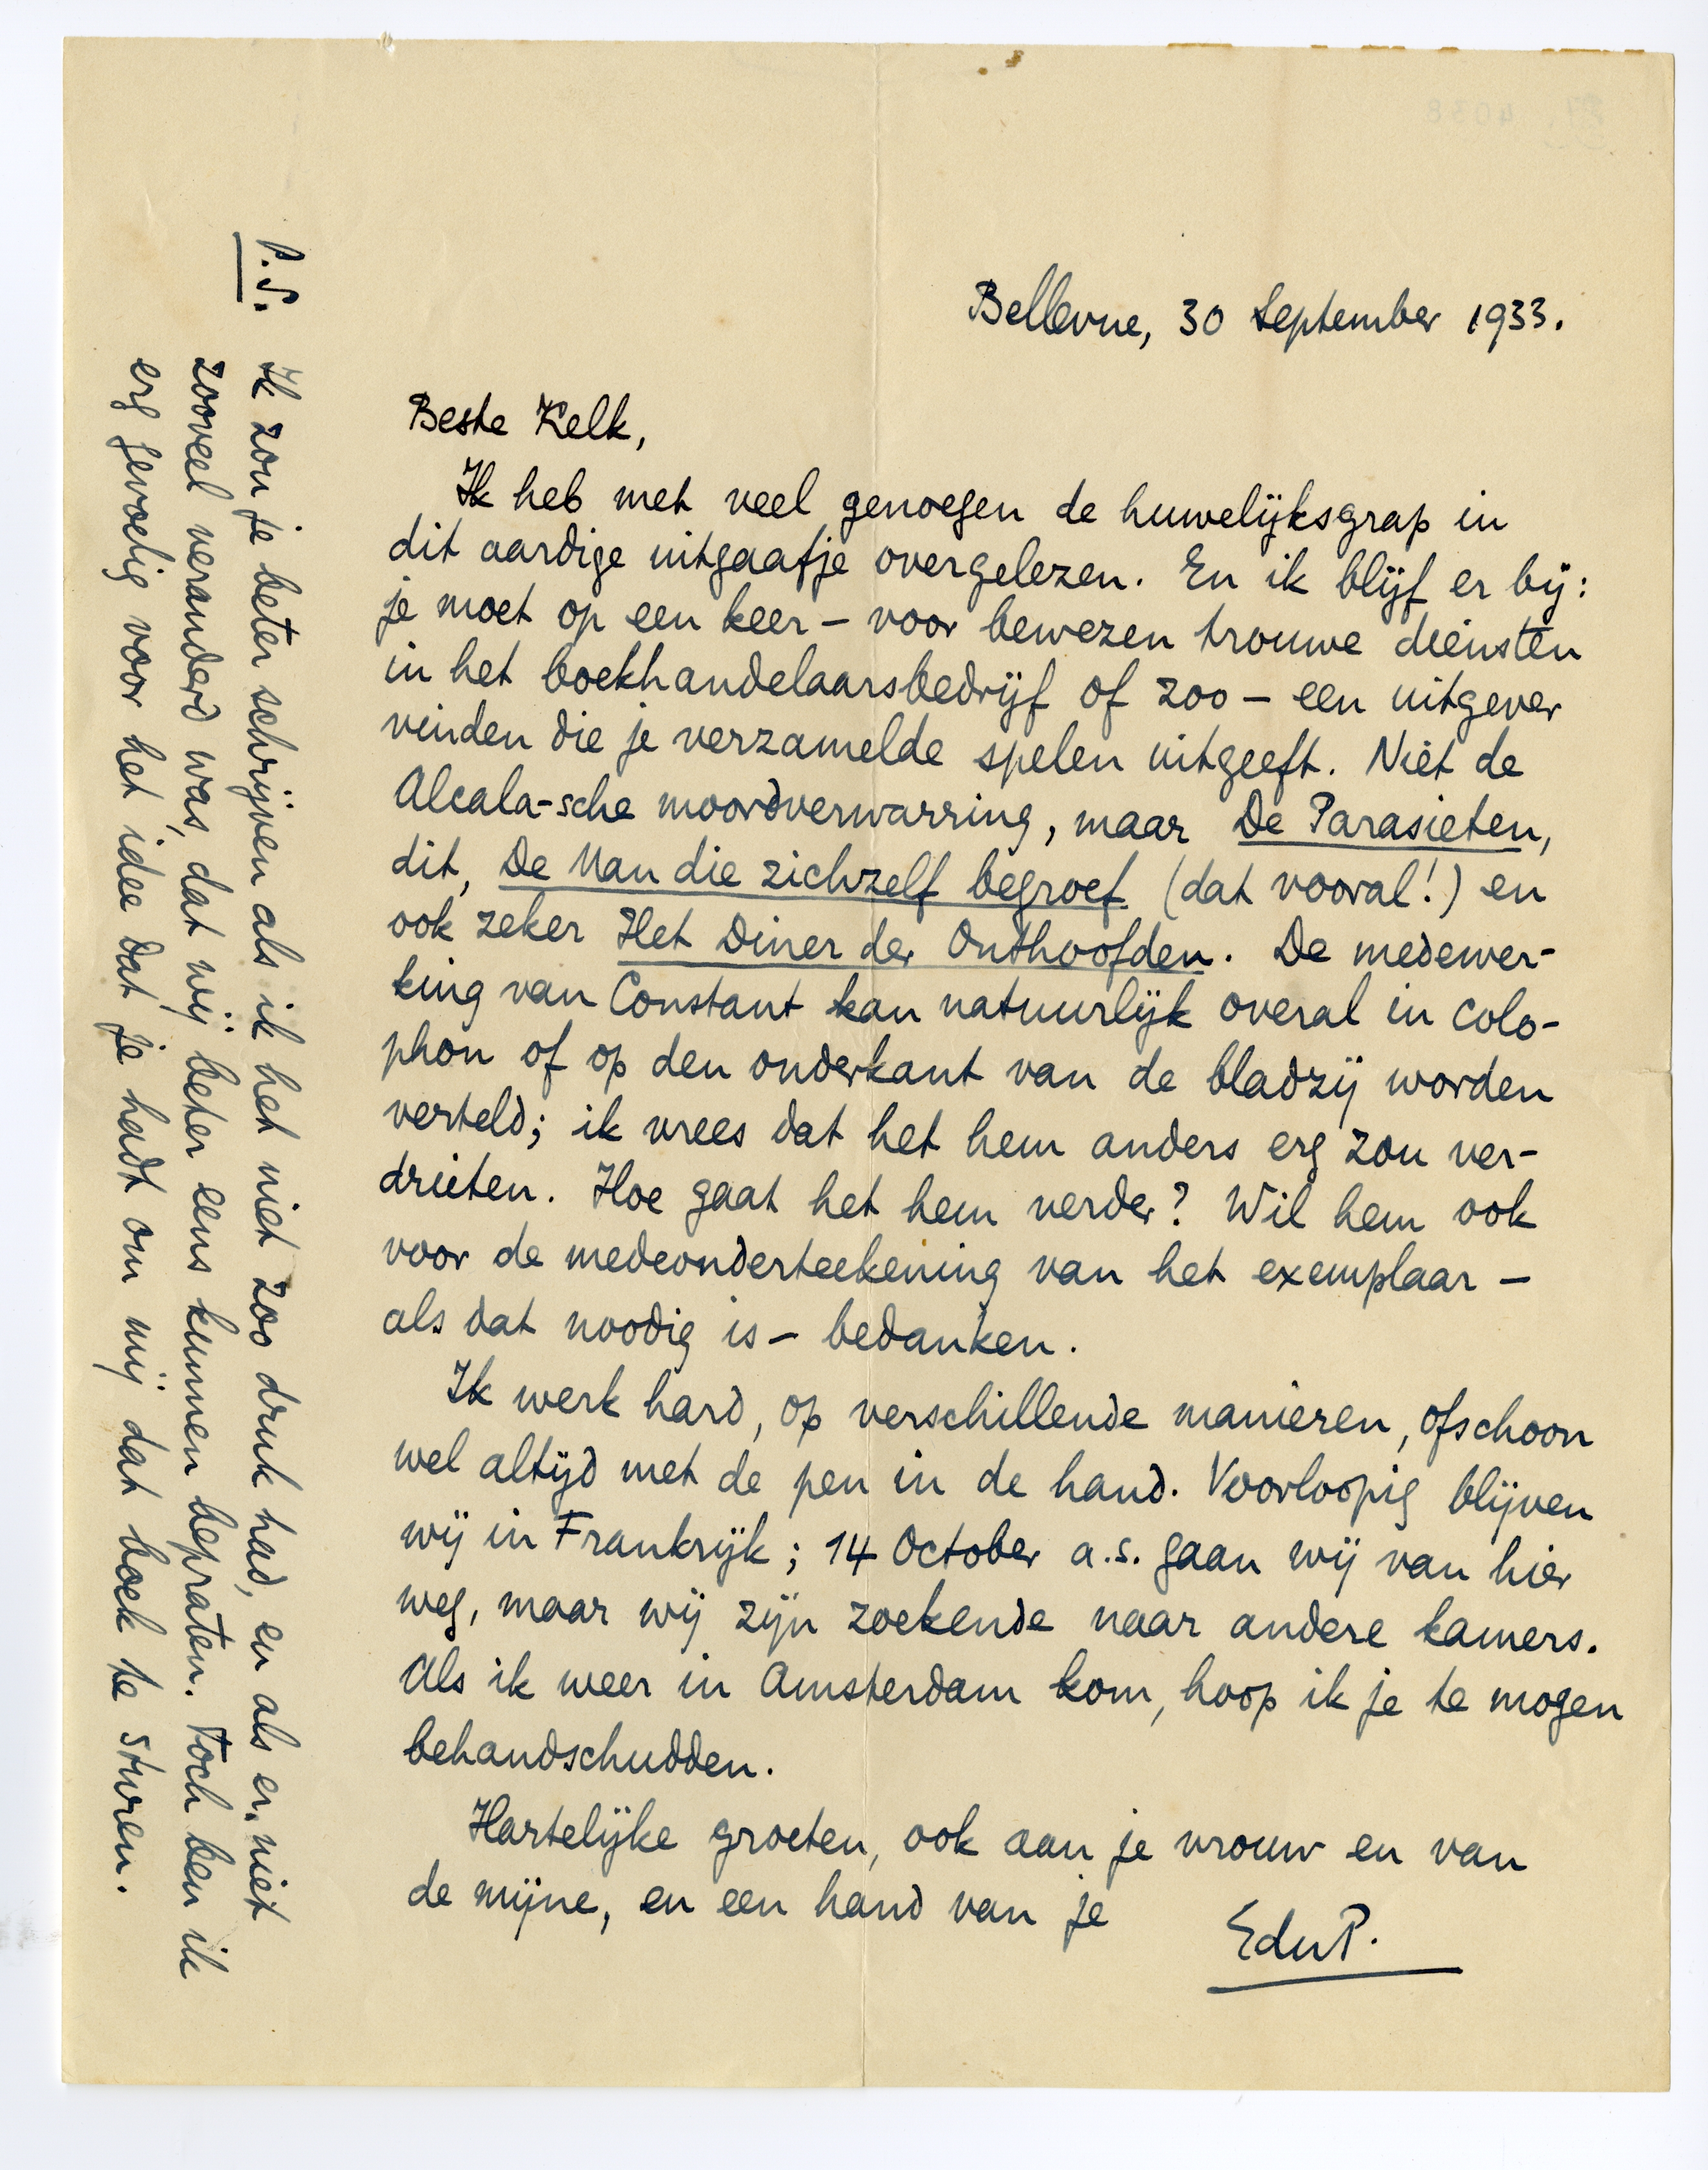 Bellevue, 30 September 1933.
Beste Kelk,
Ik heb met veel genoegen de huwelijksgrap in
dit aardige uitgaafje overgelezen. En ik blijf er bij:
je moet op een keer – voor bewezen trouwe diensten
in het boekhandelaarsbedrijf of zoo – een uitgever
vinden die je verzamelde spelen uitgeeft. Niet de
Alcala-sche moordverwarring, maar De Parasieten,
dit, De Man die zichzelf begroef (dat vooral!) en
ook zeker Het Diner der Onthoofden. De medewer-
king van Constant kan natuurlijk overal in colo-
phon of op den onderkant van de bladzij worden
verteld; ik vrees dat het hem anders erg zou ver-
drieten. Hoe gaat het hem verder? Wil hem ook
voor de medeonderteekening van het exemplaar –
als dat noodig is – bedanken.
Ik werk hard, op verschillende manieren, ofschoon
wel altijd met de pen in de hand. Voorloopig blijven
wij in Frankrijk; 14 October a.s. gaan wij van hier
weg, maar wij zijn zoekende naar andere kamers.
Als ik weer in Amsterdam kom, hoop ik je te mogen
behandschudden.
Hartelijke groeten, ook aan je vrouw en van
de mijne, en een hand van je
EduP.
P.S. Ik zou je beter schrijven als ik het niet zoo druk had, en als er niet
zooveel veranderd was, dat wij beter eens kunnen bepraten. Toch ben ik
erg gevoelig voor het idee dat je hadt om mij dat boek te sturen.